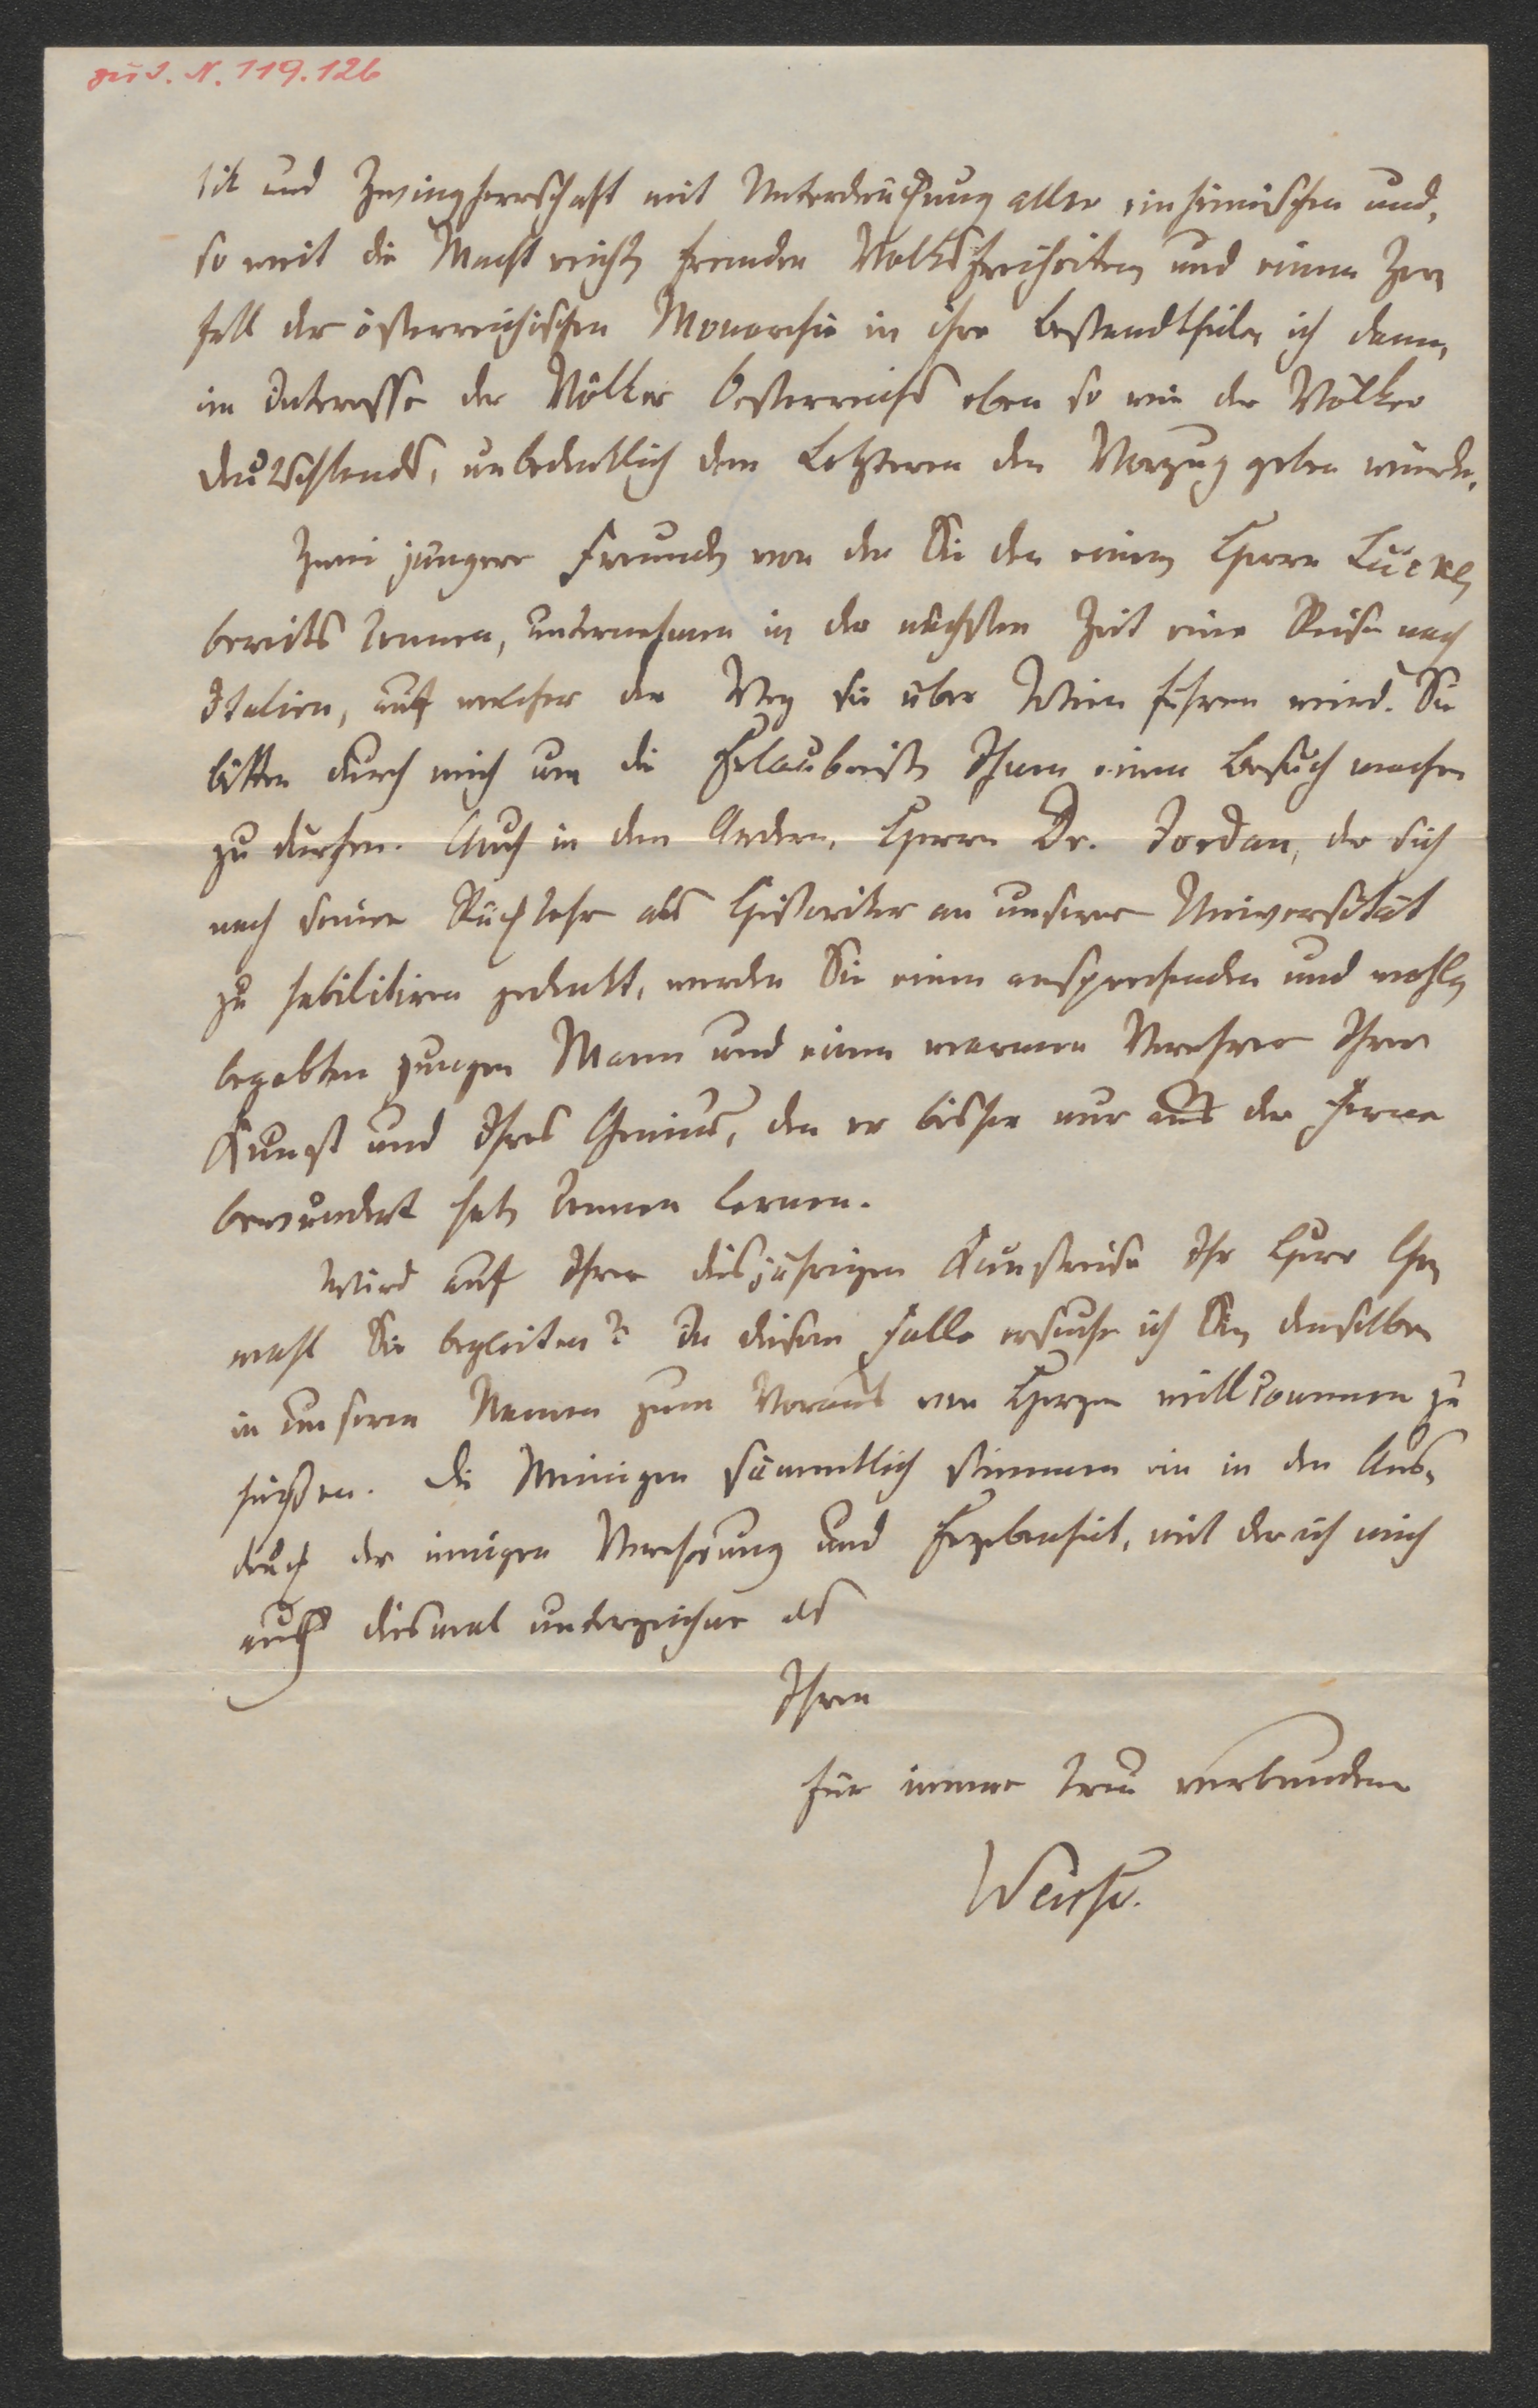 zu J. N. 119.126
tik und Zwingherrschaft mit Unterdrückung aller einheimischen und,
so weit die Macht reicht, fremden Volksfreiheiten, und einem Zer,
fall der österreichischen Monarchie in ihre Bestandtheile, ich dann,
im Interesse der Völker Oesterreichs eben so wie der Völker
Deutschlands, unbedenklich dem Letzteren den Vorzug geben würde.
Zwei jüngere Freunde, von der Sie den einen, Herrn Lücke,
bereits kennen, unternehmen in der nächsten Zeit eine Reise nach
Italien, auf welcher der Weg sie über Wien führen wird. Sie
bitten durch mich um die Erlaubniß, Ihnen einen Besuch machen
zu dürfen. Auch in dem Andern, Herrn Dr. Jordan, der sich
nach seiner Rückkehr als Historiker an unserer Universität
zu habilitiren gedenkt, werden Sie einen ansprechenden und wohl,
begabten jungen Mann und einen warmen Verehrer Ihrer
Kunst und Ihres Genius, den er bisher nur aus der Ferne
bewundert hat, kennen lernen.
Wird auf Ihrer diesjährigen Kunstreise Ihr Herr Ge,
mahl Sie begleiten? In diesem Falle ersuche ich Sie, denselben
in unserem Namen zum Voraus von Herzen willkommen zu
heißen. Die Meinigen sämmtlich stimmen ein in den Aus,
druck der innigen Verehrung und Ergebenheit, mit der ich mich
auch diesmal unterzeichne als
Ihren
für immer treu verbundenen
Weiße.